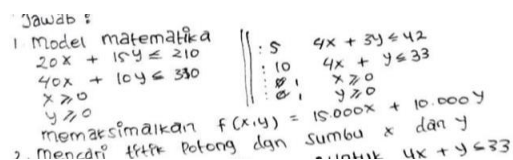 Jawab :
1. Model matematika
20x + 15y ≤ 210 || : 5 4x + 3y ≤ 42
40x + 10y ≤ 330 || : 10 4x + y ≤ 33
x ≥ 0 x ≥ 0
y ≥ 0 y ≥ 0
memaksimalkan f(x,y) = 15.000x + 10.000y
2. mencari titik potong dgn sumbu x dan y
4x + y ≤ 33